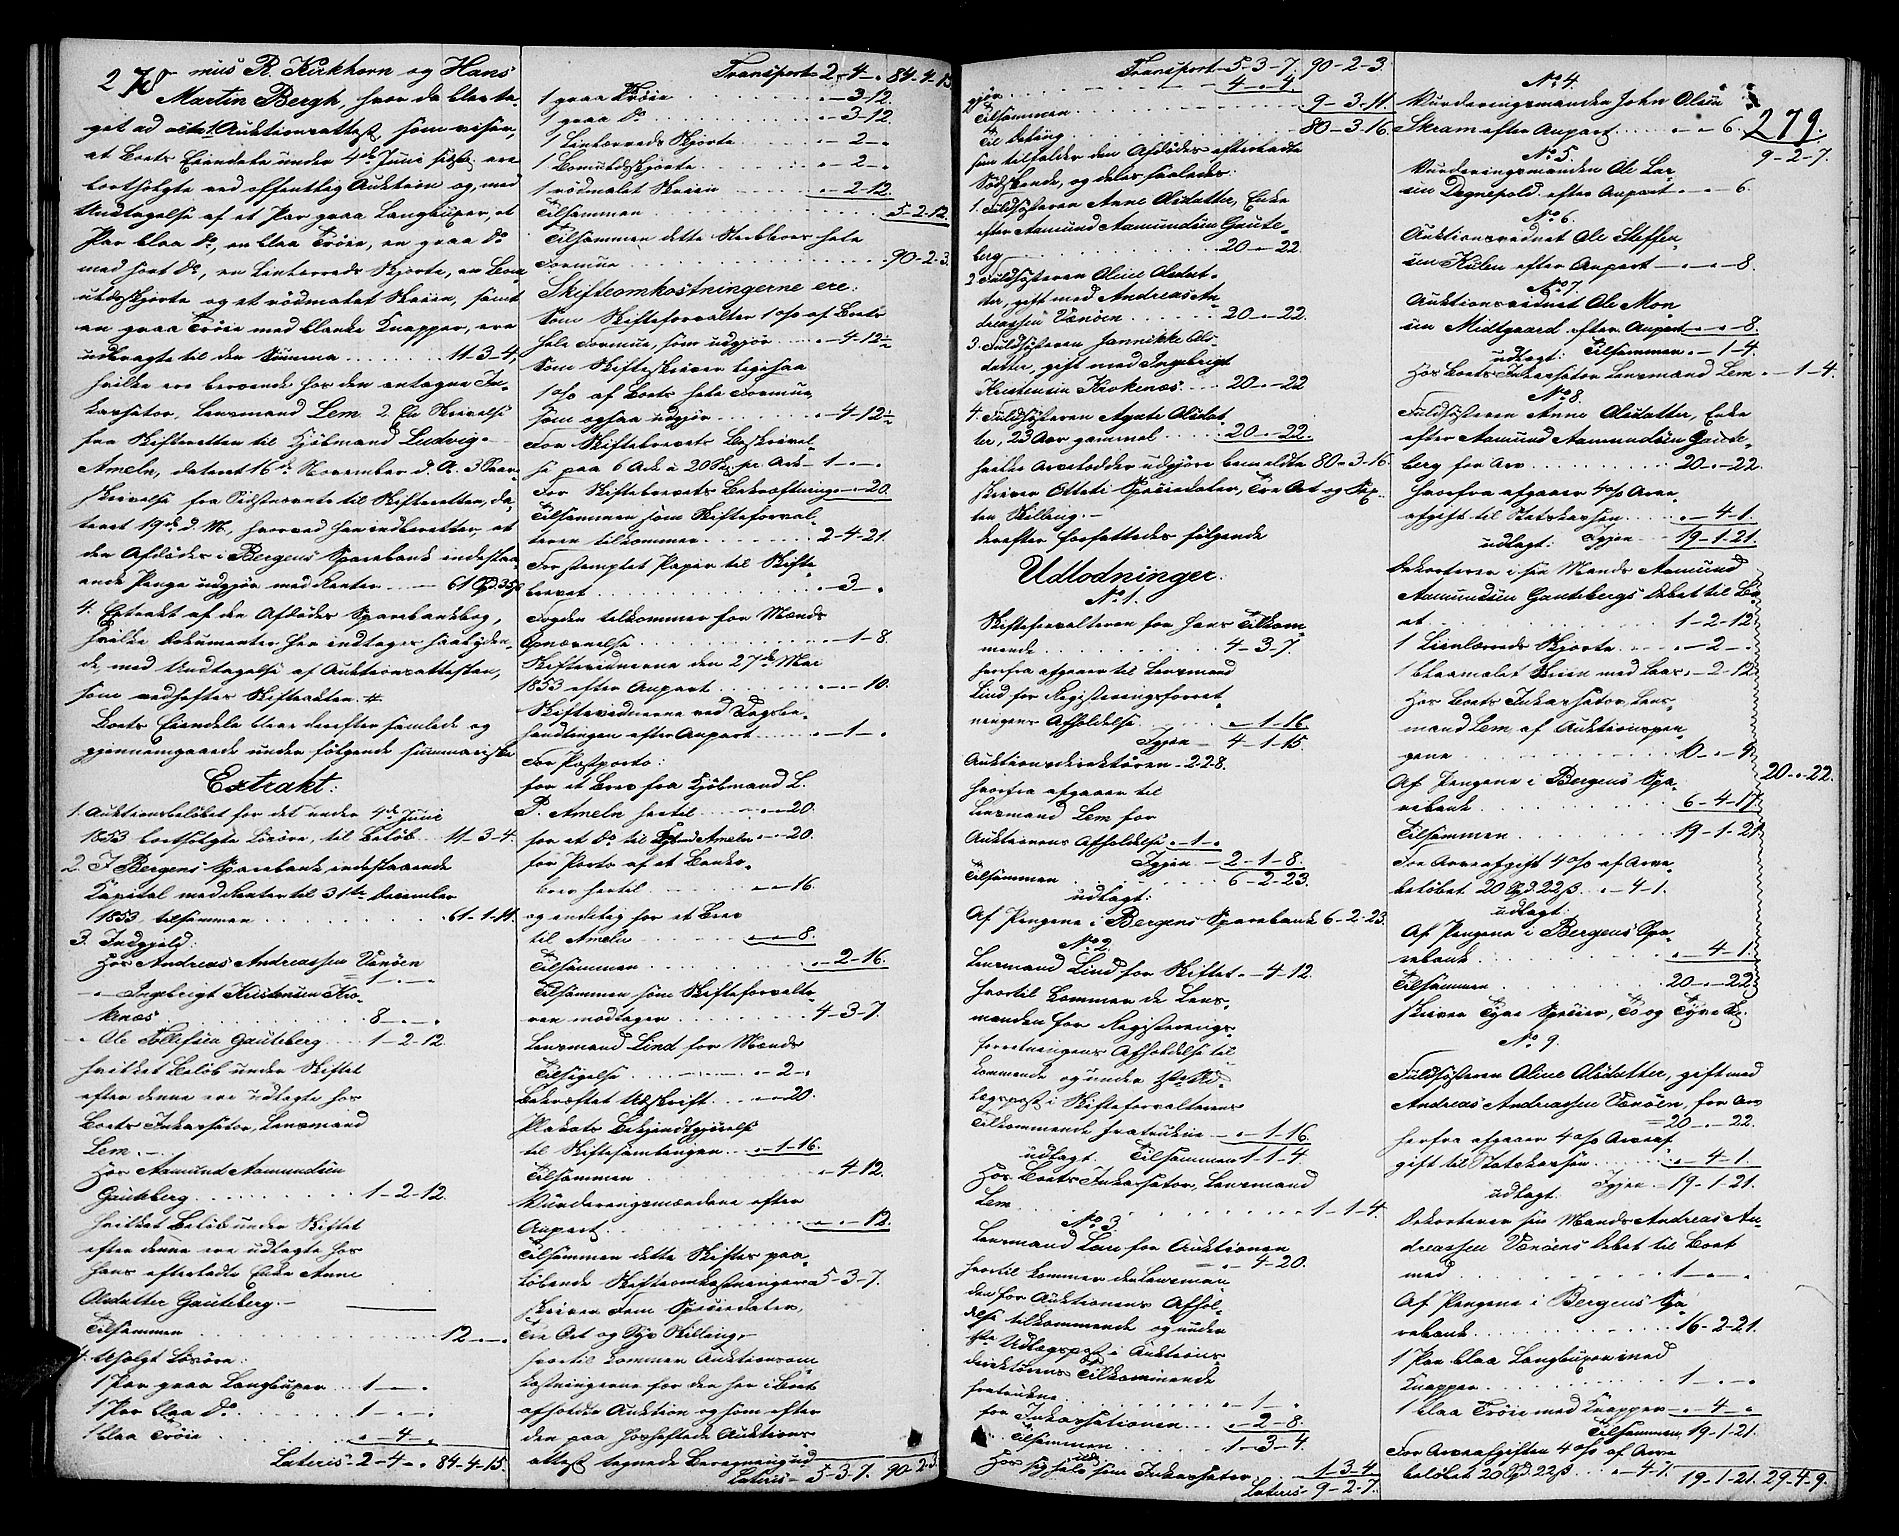 278
mus R. Kirkhorn og Hans
Martin Bergh, hvor da blev ta-
get ad acta 1. Auktionsattest, som viser,
at Boets Eiendele under 4de Juni sidstl. ere
bortsolgte ved offentlig Auktion og, med
Undtagelse af et Par graa Langbuxer, et
Par blaa Do, en blaa Trøie, en graa Do
med sort Do, en Linlærreds Skjorte, en Bom-
uldsskjorte og et rødmalet Skrin, samt
en graa Trøie med blanke Knapper, ere
udbragte til den Summa 11-3-4,
hvilke ere beroende hos den antagne In-
kassator, Lensmand Lem. 2. En Skrivelse
fra Skifteretten til Kjøbmand Ludvig
Ameln, dateret 16de November d. A. 3. Svar-
skrivelse fra Sidstnævnte til Skifteretten, da-
teret 19de d. M., hvorved han indberetter, at
den Afdødes i Bergens Sparebank indestaa-
ende Penge udgjør med Renter 61 Spd 35 ß
4. Extrakt af den Afdødes Sparebankbog,
hvilke Dokumenter her indtages saalyden-
de, med Undtagelse af Auktionsattesten,
som vedheftes Skifteakten. #
Boets Eiendele blev derefter samlede og
gjennemgaaede under følgende summariske
Extrakt:
1. Auktionsbeløbet for det under 4de Juni
1853 bortsolgte Løsøre, til Beløb 11-3-4.
2. I Bergens Sparebank indestaaende
Kapital med Renter til 31te December
1853, tilsammen 61-1-11.
3. Indgjeld:
Hos Andreas Andreassen Vænøen
1-"-"
-"- Ingebrigt Kristensen Kro-
kenæs 8-"-"
-"- Ole Tollefsen Gauteberg 1-2-12.
hvilket Beløb under Skiftet
efter denne ere udlagte hos
Boets Inkassator, Lensmand
Lem.-
Hos Aamund Aamundsen
Gauteberg 1-2-12.
hvilket Beløb under Skiftet
efter denne ere udlagte hos
hans efterladte Enke Anne
Olsdatter Gauteberg.-
Tilsammen 12-"-"
4. Usolgt Løsøre:
1 Par graa Langbuxer 1-"-"
1 Par blaa Do 1-"-"
1 blaa Trøie "-4-"
Lateris 2-4-" 84-4-15.
Transport 2-4-" 84-4-15
1 graa Trøie "-3-12.
1 graa Do "-3-12.
1 Linlærreds Skjorte "-2-"
1 Bomuldsskjorte "-2-"
1 rødmalet Skrin "-2-12.
Tilsammen 5-2-12.
Tilsammen dette Sterbboes hele
Formue 90-2-3.
Skifteomkostningerne ere:
Som Skifteforvalter 1 o/o af Boets
hele Formue, som udgjør "-4-12½
Som Skifteskriver ligesaa
1 o/o af Boets hele Formue
som ogsaa udgjør "-4-12½
For Skiftebrevets Beskrivel-
se paa 6 Ark a 20 Sk. pr. Ark 1-"-"
For Skiftebrevets Bekræftning "-"-20.
Tilsammen som Skifteforval-
teren tilkommer 2-4-21.
For stemplet Papir til Skifte-
brevet "-3-"
Fogden tilkommer for Mænds
Opnævnelse "-1-8.
Skiftevidnerne den 27de Mai
1853 efter Anpart "-"-10.
Skiftevidnerne ved Dagsbe-
handlingen efter Anpart "-1-"
For Postporto:
for et Brev fra Kjøbmand L.
P. Ameln hertil "-"-20.
for et Do til Kjøbmd Ameln "-"-20.
for Porto af et Banke-
brev hertil "-"-16.
og endelig for et Brev
til Ameln "-"-8.
Tilsammen "-2-16.
Tilsammen som Skifteforvalte-
ren modtager 4-3-7.
Lensmand Lind for Mænds
Tilsigelse "-2-"
Bekræftet Udskrift "-"-20.
Plakats Bekjendtgjørelse
til Skiftesamlingen "-1-16.
Tilsammen "-4-12.
Vurderingsmændene efter
Anpart "-"-12.
Tilsammen dette Skiftes paa-
løbende Skifteomkostninger 5-3-7.
skriver Fem Speciedaler,
Tre Ort og Syv Skilling,
hvortil kommer Auktionsom-
kostningerne for den her i Boet
afholdte Auktion og som efter
den paa hosheftede Auktions-
attest tegnede Beregning ud-
Lateris 5-3-7. 90-2-3.
Transport 5-3-7. 90-2-3.
gjør 4-"-4
Tilsammen 9-3-11.
Til Deling 80-3-16.
som tilfalder den Afdødes efterladte
Sødskende, og deles saaledes:
1. Fuldsøsteren Anne Olsdatter, Enke
efter Aamund Aamundsen Gaute-
berg 20-"-22.
2. Fuldsøsteren Oline Olsdat-
ter, gift med Andreas An-
dreassen Vænøen 20-"-22.
3. Fuldsøsteren Jannikke Ols-
datter, gift med Ingebrigt
Kristensen Krokenæs 20-"-22
4. Fuldsøsteren Agate Olsdat-
ter, 23 Aar gammel 20-"-22.
hvilke Arvelodder udgjøre bemeldte 80-3-16.
skriver Otteti Speciedaler, Tre Ort og Sex-
ten Skilling.-
Derefter forfattedes følgende
Udlodninger:
No 1.
Skifteforvalteren for hans Tilkom-
mende 4-3-7
herfra afgaaer til Lensmand
Lind for Registreringsforret-
ningens Afholdelse "-1-16.
Igjen 4-1-15.
Auktionsdirektøren 2-2-8.
hvorfra afgaaer til
Lensmand Lem for
Auktionens Afholdelse "-1-"
Igjen 2-1-8.
Tilsammen 6-2-23.
udlagt:
Af Pengene i Bergens Sparebank 6-2-23.
No 2.
Lensmand Lind for Skiftet "-4-12.
hvortil kommer de Lens-
manden for Registrerings-
forretningens Afholdelse til-
kommende og under 1ste Ud-
lægspost i Skifteforvalterens
Tilkommende fratrukne "-1-16.
udlagt: Tilsammen 1-1-4.
Hos Boets Inkassator, Lensmand
Lem 1-1-4.
No 3.
Lensmand Lem for Auktionen
"-4-20.
hvortil kommer den Lensman-
den for Auktionens Afhol-
delse tilkommende og under
1ste Udlægspost i Auktions-
direktørens Tilkommende
fratrukne "-1-"
for Inkassationen "-2-8.
Tilsammen 1-3-4.
Hos sig selv som Inkassator 1-3-4
Lateris 9-2-7.
279.
No 4.
Vurderingsmanden John Olsen
Skram efter Anpart "-"-6.
9-2-7.
No 5.
Vurderingsmanden Ole Lar-
sen Degnepold efter Anpart "-"-6.
No 6.
Auktionsvidnet Ole Steffen-
sen Kulen efter Anpart "-"-8.
No 7.
Auktionsvidnet Ole Mon-
sen Midtgaard efter Anpart "-"-8.
udlagt: Tilsammen "-1-4.
Hos Boets Inkassator Lensmand Lem "-1-4.
No 8.
Fuldsøsteren Anne Olsdatter, Enke
efter Aamund Aamundsen Gaute-
berg for Arv 20-"-22.
hvorfra afgaaer 4 o/o Arve-
afgift til Statskassen "-4-1.
udlagt: Igjen 19-1-21.
Dekorteres i sin Mands Aamund
Aamundsen Gautebergs Debet til Bo-
et 1-2-12
1 Linlærreds Skjorte "-2-"
1 blaamalet Skrin med Laas "-2-12
Hos Boets Inkassator Lens-
mand Lem, af Auktionspen-
gene 10-"-4.
Af Pengene i Bergens Spa-
rebank 6-4-17.
20-"-22.
Tilsammen 19-1-21
For Arveafgift 4 o/o af Arve-
beløbet 20 Spd. 22 ß "-4-1.
udlagt:
Af Pengene i Bergens Spa-
rebank "-4-1.
Tilsammen 20-"-22
skriver Tyve Specier, To og Tyve Sk.
No 9.
Fuldsøsteren Oline Olsdatter, gift med
Andreas Andreassen Vænøen, for Arv
20-"-22.
herfra afgaaer 4 o/o Arveaf-
gift til Statskassen "-4-1.
udlagt: Igjen 19-1-21.
Dekorteres sin Mands Andreas An-
dreassen Vænøens Debet til Boet
med 1-"-"
Af Pengene i Bergens Spa-
rebank 16-2-21.
1 Par blaa Langbuxer med
Knapper 1-"-"
1 blaa Trøie med Knapper "-4-"
Tilsammen 19-1-21.
For Arveafgiften 4 o/o af Arve-
beløbet 20 Spd. 22 ß "-4-1. 19-1-21. 29-4-9.